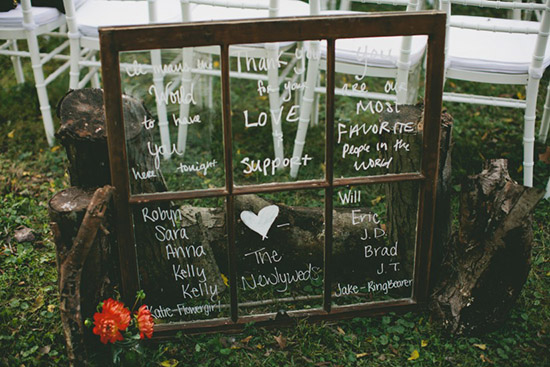 It means the
World
to have
you
here tonight
Thank you
for your
LOVE
&
support
You
are our
MOST
FAVORITE
People in the
world
Robyn
Sara
Anna
Kelly
Kelly
Katie-Flowergirl
The
Newlyweds
Will
Eric
J.D.
Brad
J.T.
Jake-RingBearer